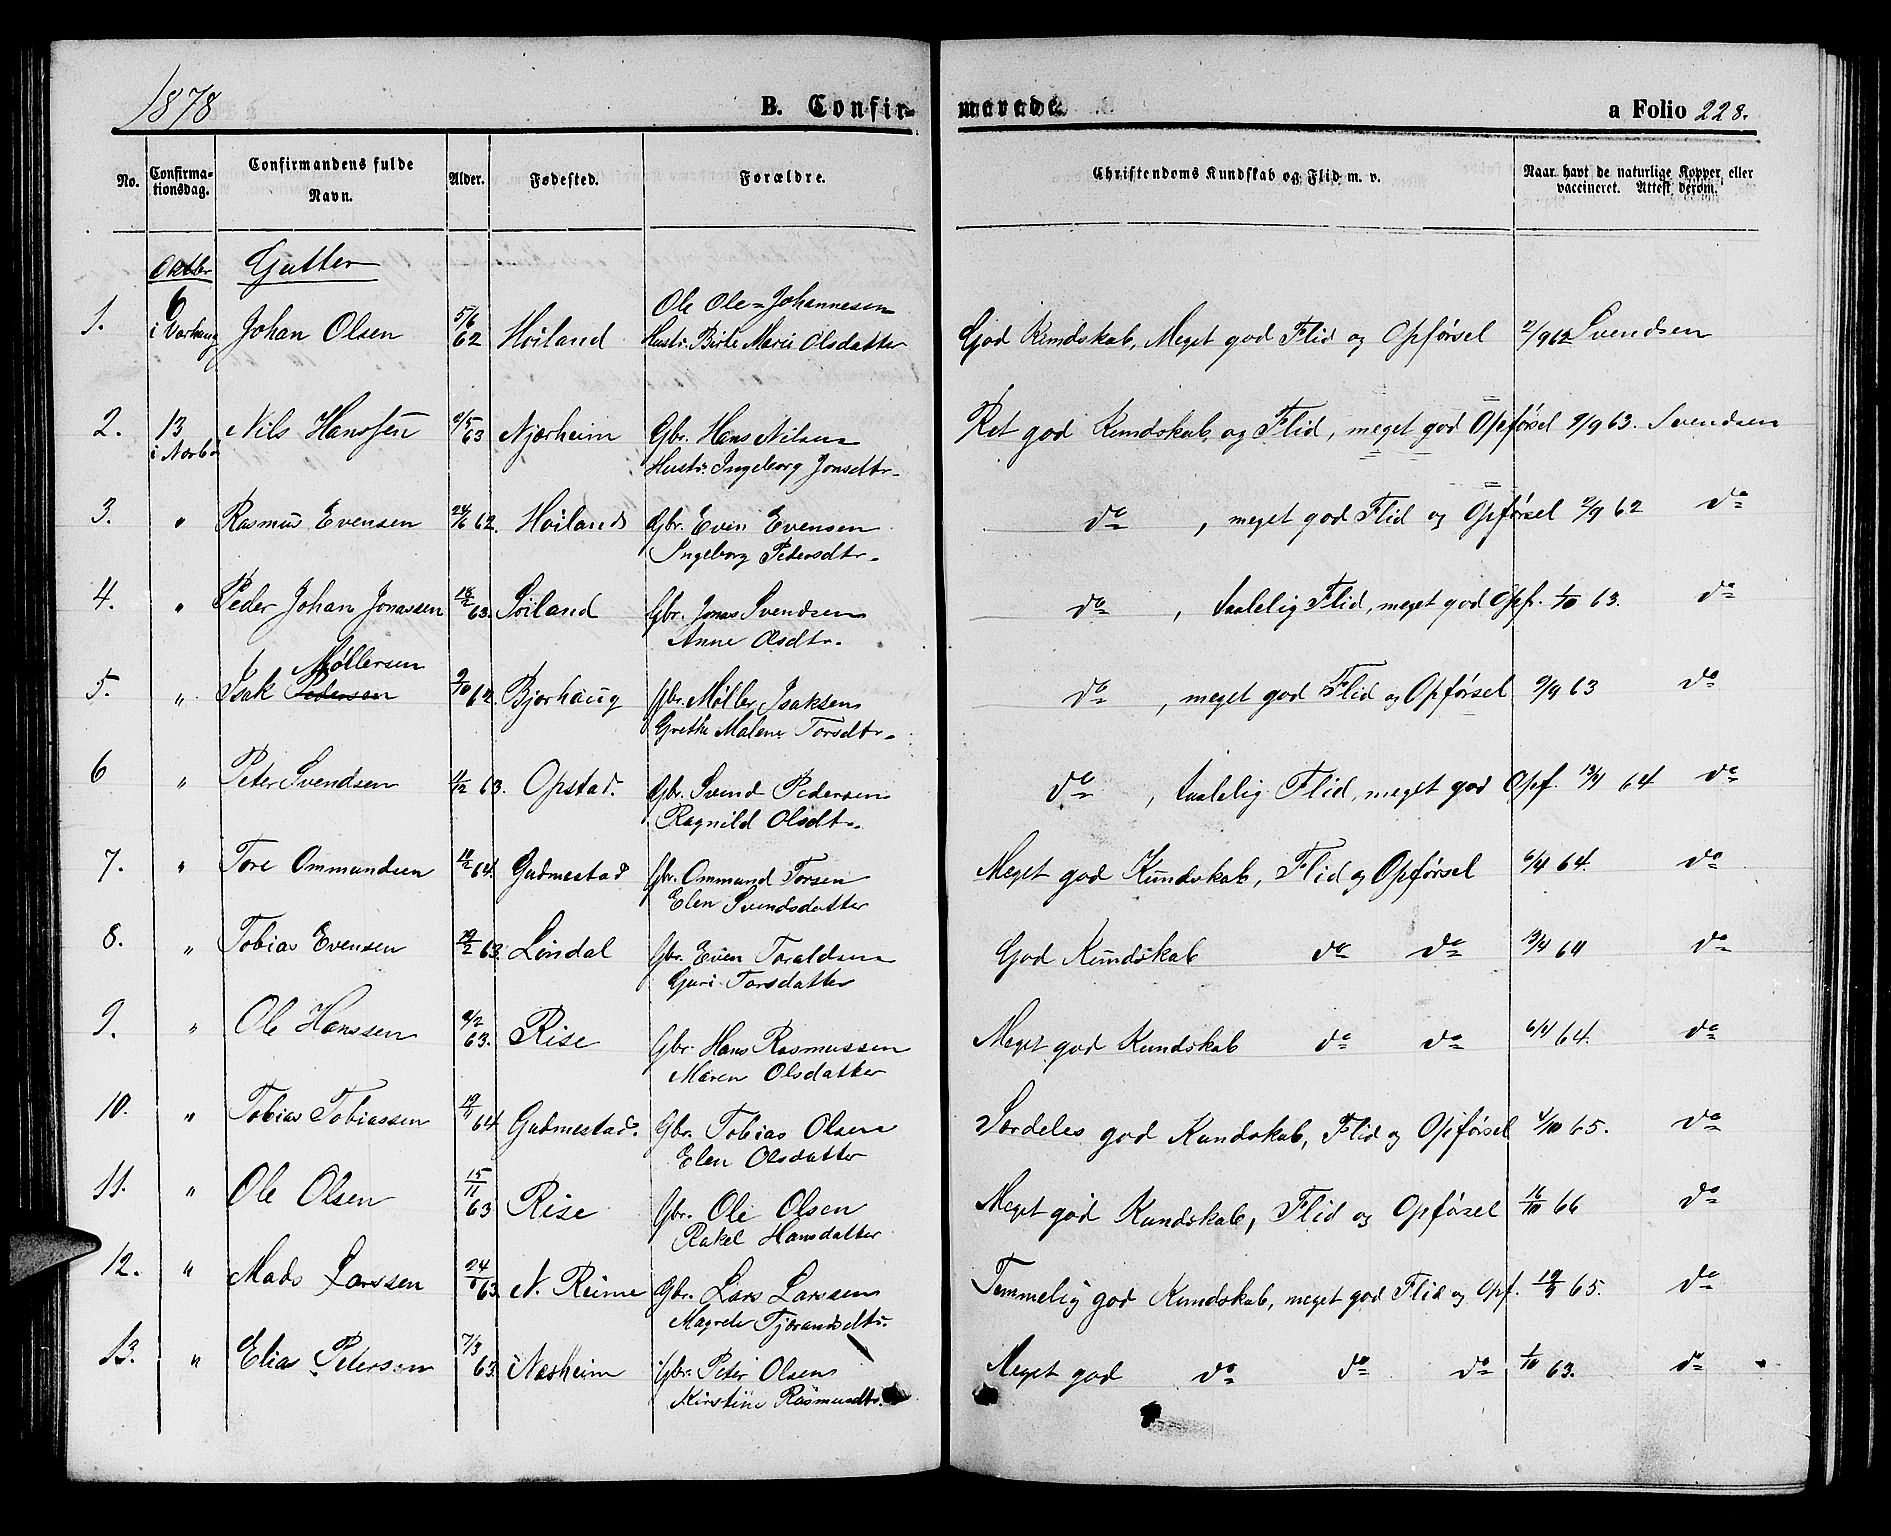 1878 B. Confirmerede. a Folio 228.
No. Confirmationsdag. Confirmandens fulde Navn. Alder. Fødested. Forældre. Christendoms Kundskab og Flid m. v. Naar havt de naturlige Kopper eller vaccineret. Attest derom.
Oktbr Gutter
1. 6 i Varhaug Johan Olsen 5/6 62 Høiland Ole Ole-Johannesen God Kundskab, Meget god Flid og Opførsel 2/9 62 Svendsen
Hustr. Birte Marie Olsdatter
2. 13 i Nærbø Nils Hanssen 2/5 63 Njærheim Gbr. Hans Nilsen Ret god Kundskab og Flid, meget god Opførsel 9/9 63. Svendsen
Hustr. Ingeborg Jonsdtr.
3. " Rasmus Evensen 24/6 62. Høiland Gbr. Even Evensen do , meget god Flid og Opførsel 2/9 62 do
Ingeborg Pedersdtr.
4. " Peder Johan Jonassen 18/2 63. Søiland Gbr. Jonas Svendsen do , taalelig Flid, meget god Opf. 1/10 63. do
Anne Olsdtr.
Møllersen
5. " Isak Pedersen 9/10 62. Bjorhaug Gbr. Møller Isaksen do , meget god Flid og Opførsel 9/9 63 do
Grethe Malene Torsdtr.
6 " Peter Svendsen 63. Opstad. Gbr. Svend Pedersen do , taalelig Flid, meget god Opf. 13/4 64 do
Ragnild Olsdtr.
7. " Tore Ommundsen 64. Gudmestad Gbr. Ommund Torsen Meget god Kundskab, Flid og Opførsel 6/4 64. do
Elen Svendsdatter
8. " Tobias Evensen 63. Lindal Gbr. Even Toraldsen God Kundskab do do 13/4 64 do
Guri Torsdatter
9. " Ole Hanssen 63. Rise Gbr. Hans Rasmussen Meget god Kundskab do do 6/4 64. do
Maren Olsdatter
10. " Tobias Tobiassen 64 Gudmestad. Gbr. Tobias Olsen Særdeles god Kundskab, Flid og Opførsel 4/10 65. do
Elen Olsdatter
11. " Ole Olsen 15/11 63 Rise Gbr. Ole Olsen Meget god Kundskab, Flid og Opførsel 16/10 66 do
Rakel Hansdatter
12. " Mads Larssen 63. N. Reime Gbr. Lars Larssen Temmelig god Kundskab, meget god Flid og Opf. 65. do
Magrete Tjærandsdtr.
13. " Elias Petersen 7/3 63. Nærheim Gbr. Peter Olsen Meget god do do do 1/10 63. do
Kirstine Rasmusdtr.